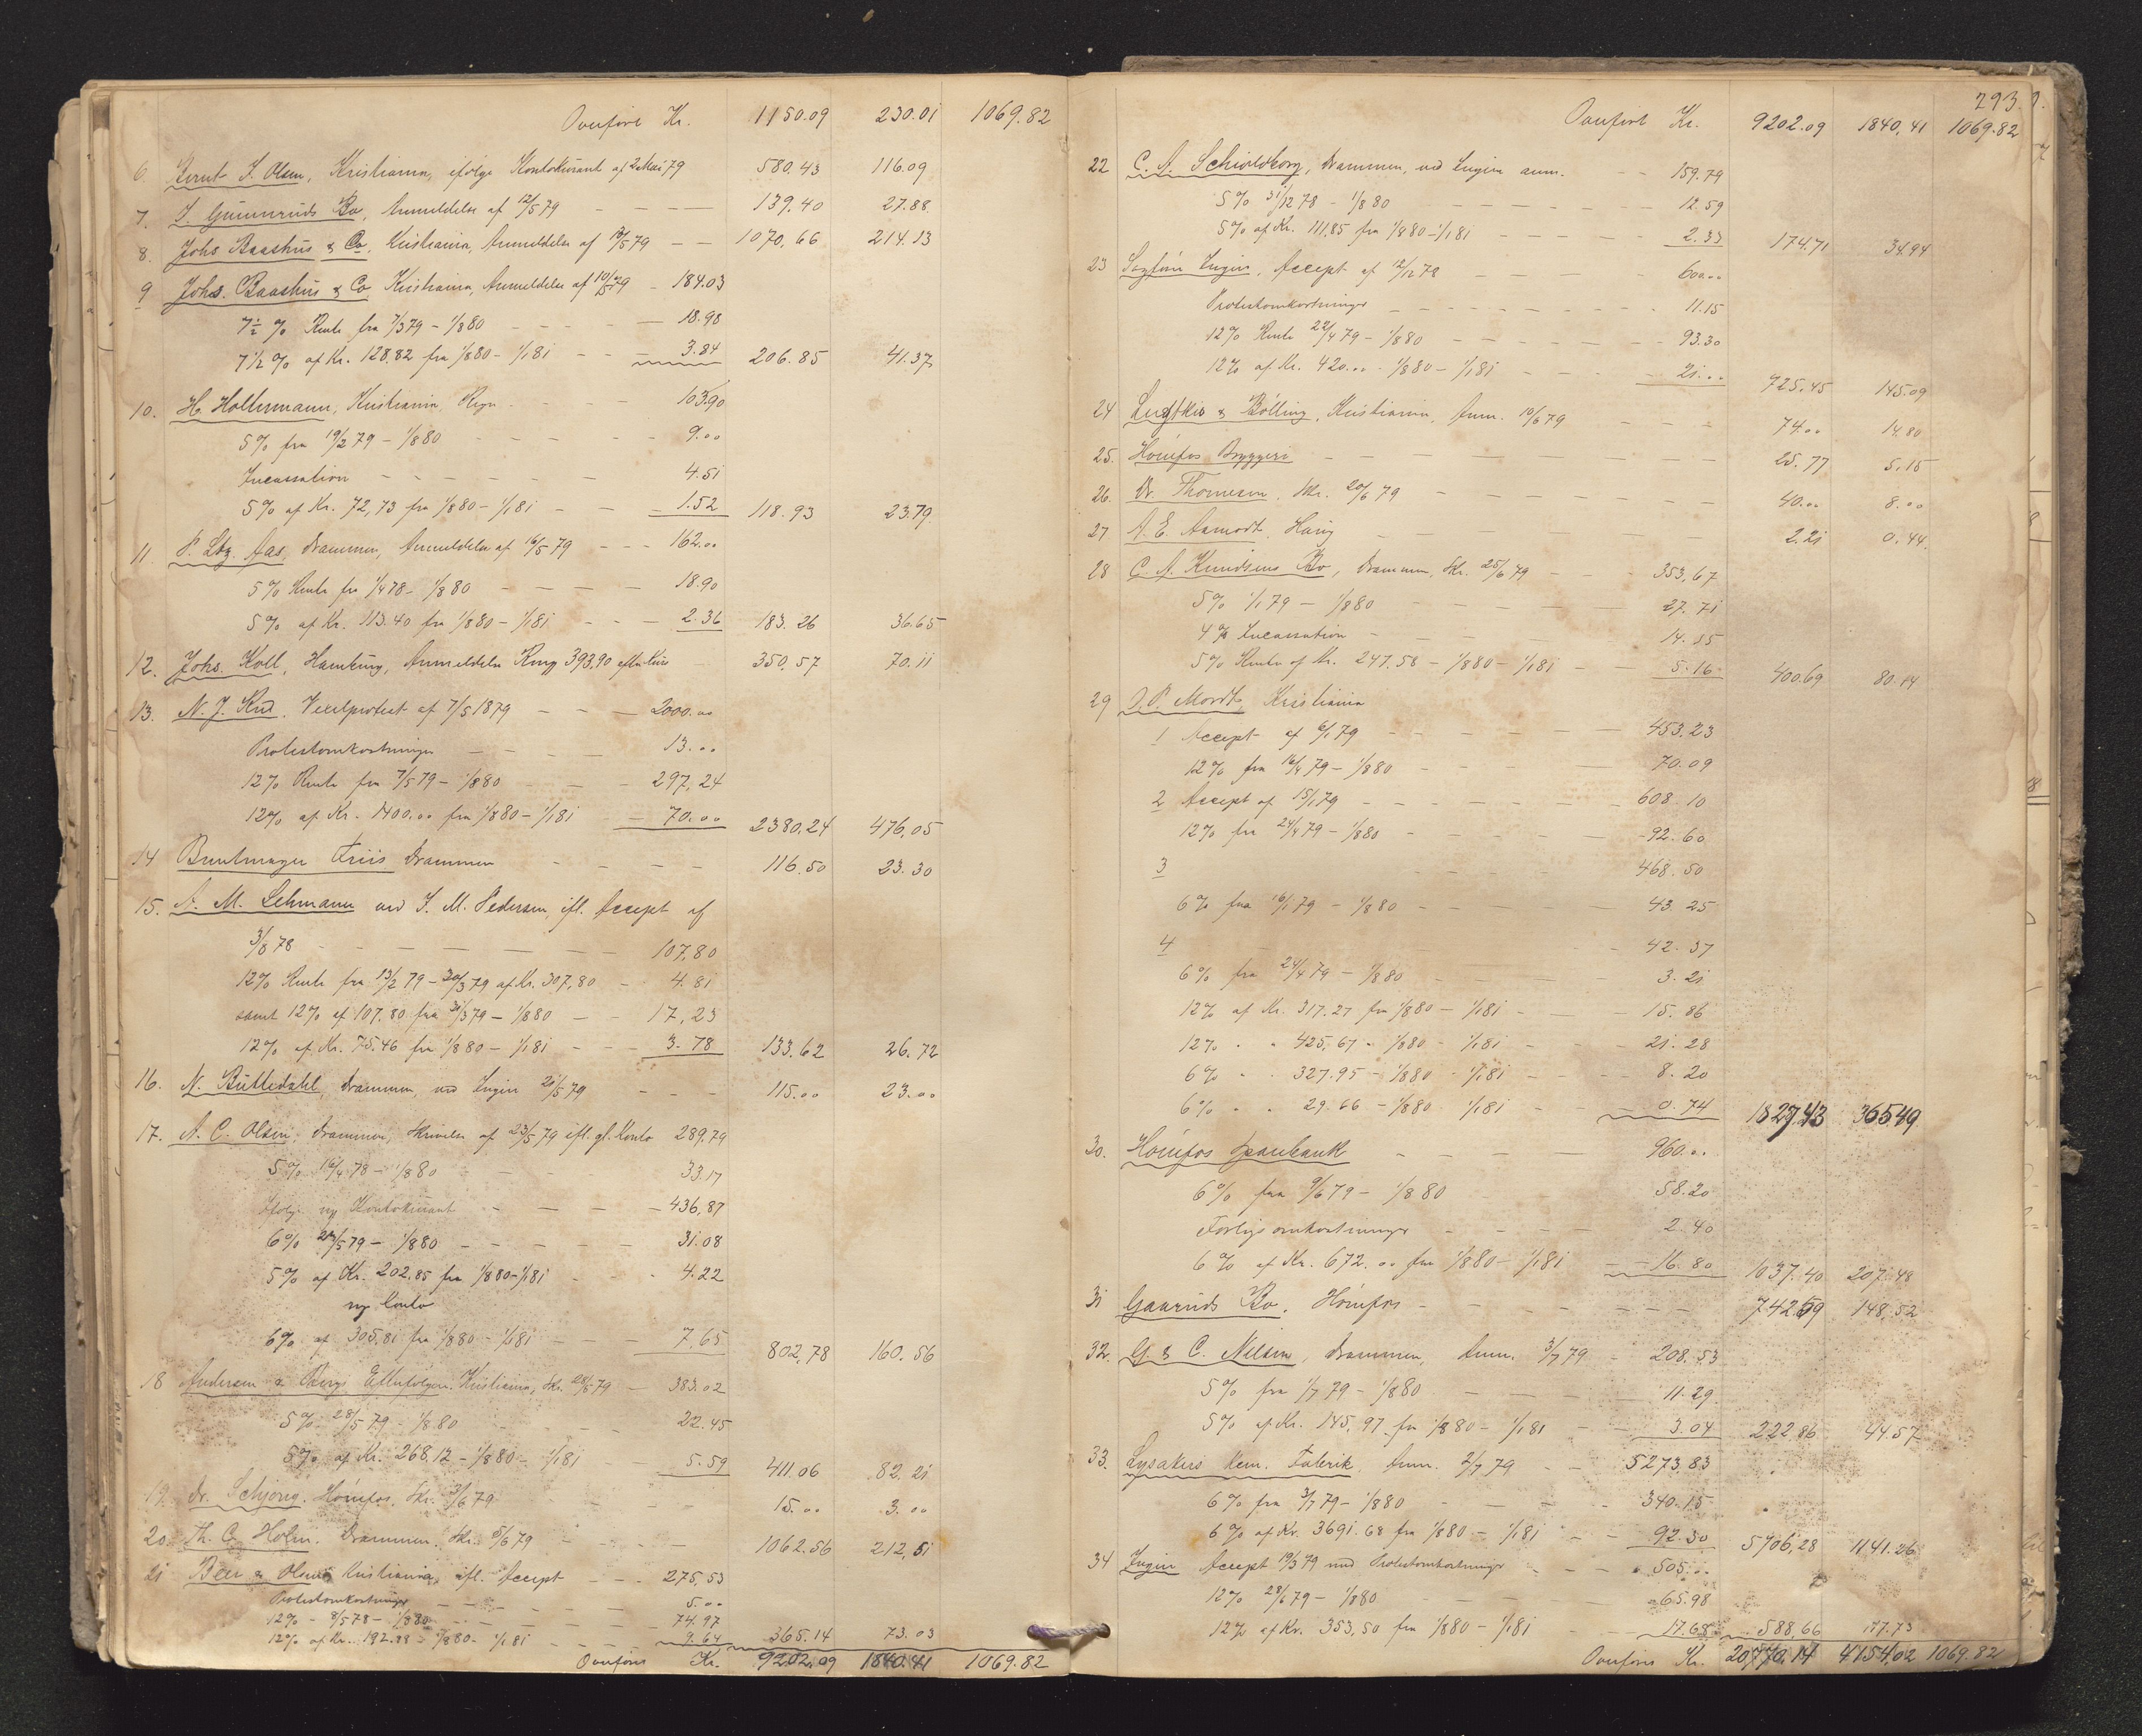 Overført Kr. 1150.09 230.01 1069.82
6. Bernt I. Olsen, Kristiania, ifølge Kontokurant af 2 Mai 79 580.43 116.09
7. I. Gummeruds Bo, Anmeldelse af 12/5 79 139.40 27.88
8. Johs Baashus & Co, Kristiania, Anmeldelse af 10/5 79 1070.66 214.13
9 Johs. Baashus & Co, Kristiania, Anmeldelse af 10/5 79 184.03
7½ % Rente fra 7/3 79 - 1/8 80 18.98
7½ % af Kr. 128.82 fra 1/8 80 - 1/1 81 3.84 206.85 41.37
10. H. Holtermann, Kristiania, Regn. 103.90
5% fra 19/2 79 - 1/8 80 9.00
Incassation 4.51
5% af Kr. 72,73 fra 1/8 80 - 1/1 81 1.52 118.93 23.79
11 P. Ltz. Aas, Drammen, Anmeldelse af 16/5 79 162.00
5% Rente fra 1/4 78 - 1/8 80 18.90
5% af Kr. 113.40 fra 1/8 80 - 1/1 81 2.36 183.26 36.65
12. Johs. Koll, Hamburg, Anmeldelse 393.90 350,57 70.11
13. N. J. Rud, Vexelprotest af 7/5 1879 2000.00
Protestomkostninger 13.00
12% Rente fra 7/5 79 - 1/8 80 297,24
12% af Kr. 1400.00 fra 1/8 80 - 1/1 81 70.00 2380,24 476,05
14 Buntmager Friis Drammen 116.50 23.30
15. A. M. Lehmann ved I. M. Pedersen, ifl. Accept af
3/8 78 107,80
12% Rente fra 13/2 79 - 30/3 79 af Kr. 307,80 4.81
samt 12% af 107.80 fra 31/3 79 - 1/8 80 17,23
12% af Kr. 75.46 fra 1/8 80 - 1/1 81 3.78 133.62 26.72
16. N. Buttedahl, Drammen, ved Lugin 21/5 79 115.00 23.00
17. A. C. Olsen, Drammen, Skrivelse af 23/5 79 ifl. gl. Conto 289.79
5% 16/4 78 - 1/8 80 33.17
Ifølge ny Kontokurant 436,87
6% 28/5 79 - 1/8 80 31.08
5% af Kr. 202.85 fra 1/8 80 - 1/1 81 4.22
ny Conto
6% af 305.81 fra 1/8 80 - 1/1 81 7,65 802,78 160.56
18 Andersen & Bergs Efterfølger, Kristiania, Skr. 28/5 79 383.02
5% 28/5 79 - 1/8 80 22.45
5% af Kr. 268.12 - 1/8 80 - 1/1 81 5.59 411.06 82.21
19. Dr. Schjøng, Hønefos, Skr. 3/6 79 15.00 3.00
20. Th. C. Holm, Drammen, Skr. 5/6 79 1062.56 212,51
21 Beer & Olsen Kristiania, ifl. Accept 275,53
Protestomkostninger 5.00
12% - 8/5 78 - 1/8 80 74.97
12% af Kr. 192.88 - 1/8 80 - 1/1 81 9.64 365.14 73.03
Overføres Kr. 9202.09 1840.41 1069.82
293.
Overført Kr. 9202.09 1840,41 1069.82
22 C. A. Schioldborg, Drammen, ved Lugin anm. 159.79
5% 31/12 78 - 1/8 80 12.59
5% af Kr. 111.85 fra 1/8 80 - 1/1 81 2.33 174.71 34.94
23 Lugin, Accept af 12/12 78 600.00
Protestomkostninger 11.15
12% Rente 22/4 79 - 1/8 80 93.30
12% af Kr. 420.00 - 1/8 80 - 1/1 81 21.00 725.45 145.09
24 & Bölling, Kristiania, Anm. 10/6 79 74.00 14.80
25. Hønefos Bryggeri 25.77 5.15
26. Dr. Thomesen, Skr. 20/6 79 40.00 8.00
27 A. E. Aamodt, Haug 2.21 0.44
28 C. A. Knudsens Bo, Drammen, Skr. 25/6 79 353,67
5% 1/1 79 - 1/8 80 27.71
4% Incassation 14.15
5% Rente af Kr. 247.58 - 1/8 80 - 1/1 81 5.16 400.69 80.14
29 O. P. Mordt, Kristiania
1 Accept af 6/1 79 453.23
12% fra 16/4 79 - 1/8 80 70.09
2 Accept af 15/1 79 608.10
12% fra 24/4 79 - 1/8 80 92.60
3 468.50
6% fra 16/1 79 - 1/8 80 43.25
4 42.37
6% fra 24/4 79 - 1/8 80 3.21
12% af Kr. 317.27 fra 1/8 80 - 1/1 81 15.86
12% " " 425,67 - 1/8 80 - 1/1 81 21.28
6% " " 327.95 - 1/8 80 - 1/1 81 8.20
6% " " 29.66 - 1/8 80 - 1/1 81 0.74 1827.43 365.49
30. Hønefos Sparebank 960.00
6% fra 9/6 79 - 1/8 80 58.20
Forligsomkostninger 2.40
6% af Kr. 672.00 fra 1/8 80 - 1/1 81 16.80 1037.40 207.48
31 Gaaruds Bo, Hønefos 742.59 148,52
32. G. & C. Nilsen, Drammen, Anm. 3/7 79 208.53
5% fra 1/7 79 - 1/8 80 11.29
5% af Kr. 145,97 fra 1/8 80 - 1/1 81 3.04 222.86 44.57
33. Lysakers Kem. Fabrik, Anm. 2/7 79 5273.83
6% fra 3/7 79 - 1/8 80 340.15
6% af Kr. 3691.68 fra 1/8 80 - 1/1 81 92.30 5706,28 1141.26
34 Lugin Accept 19/3 79 med Protestomkostninger 505.00
12% 28/6 79 - 1/8 80 65.98
12% af Kr. 353,50 fra 1/8 80 - 1/1 81 17.68 588,66 117.73
Overføres Kr. 20770.14 4154.02 1069.82